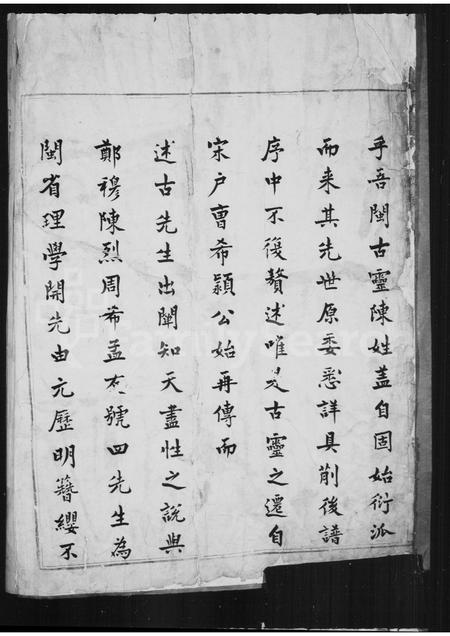 乎吾閩古靈陳姓蓋自固始衍派
而来其先世原委悉詳具前後譜
序中不復贅述唯是古靈之遷自
宋户曹希穎公始再傳而
述古先生出闡知天盡性之說與
鄭穆陳烈周希孟友號四先生為
閩省理學開先由元歷明簪纓不